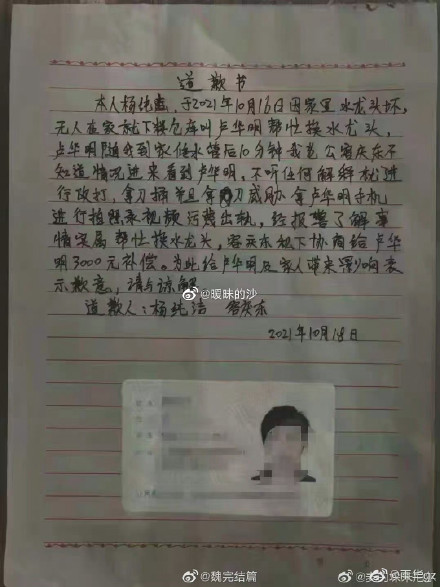 道歉书
本人杨纯洁,于2021年10月16日因家里水龙头坏,
无人在家就下楼仓库叫卢华明帮忙换水龙头,
卢华明随我到家修水管后10分钟我老公容庆东不
知道情况进来看到卢华明,不听任何解释就进
行攻打,拿刀捅并且拿刀威胁拿卢华明手机
进行拍照录视频污蔑出轨,经报警了解事
情实属帮忙换水龙头,容庆东私下协商给卢华
明3000元补偿。为此给卢华明及家人带来影响表
示歉意,请与谅解
@暧昧的沙
道歉人:杨纯洁 容庆东
2021年10月18日
@魏完结篇